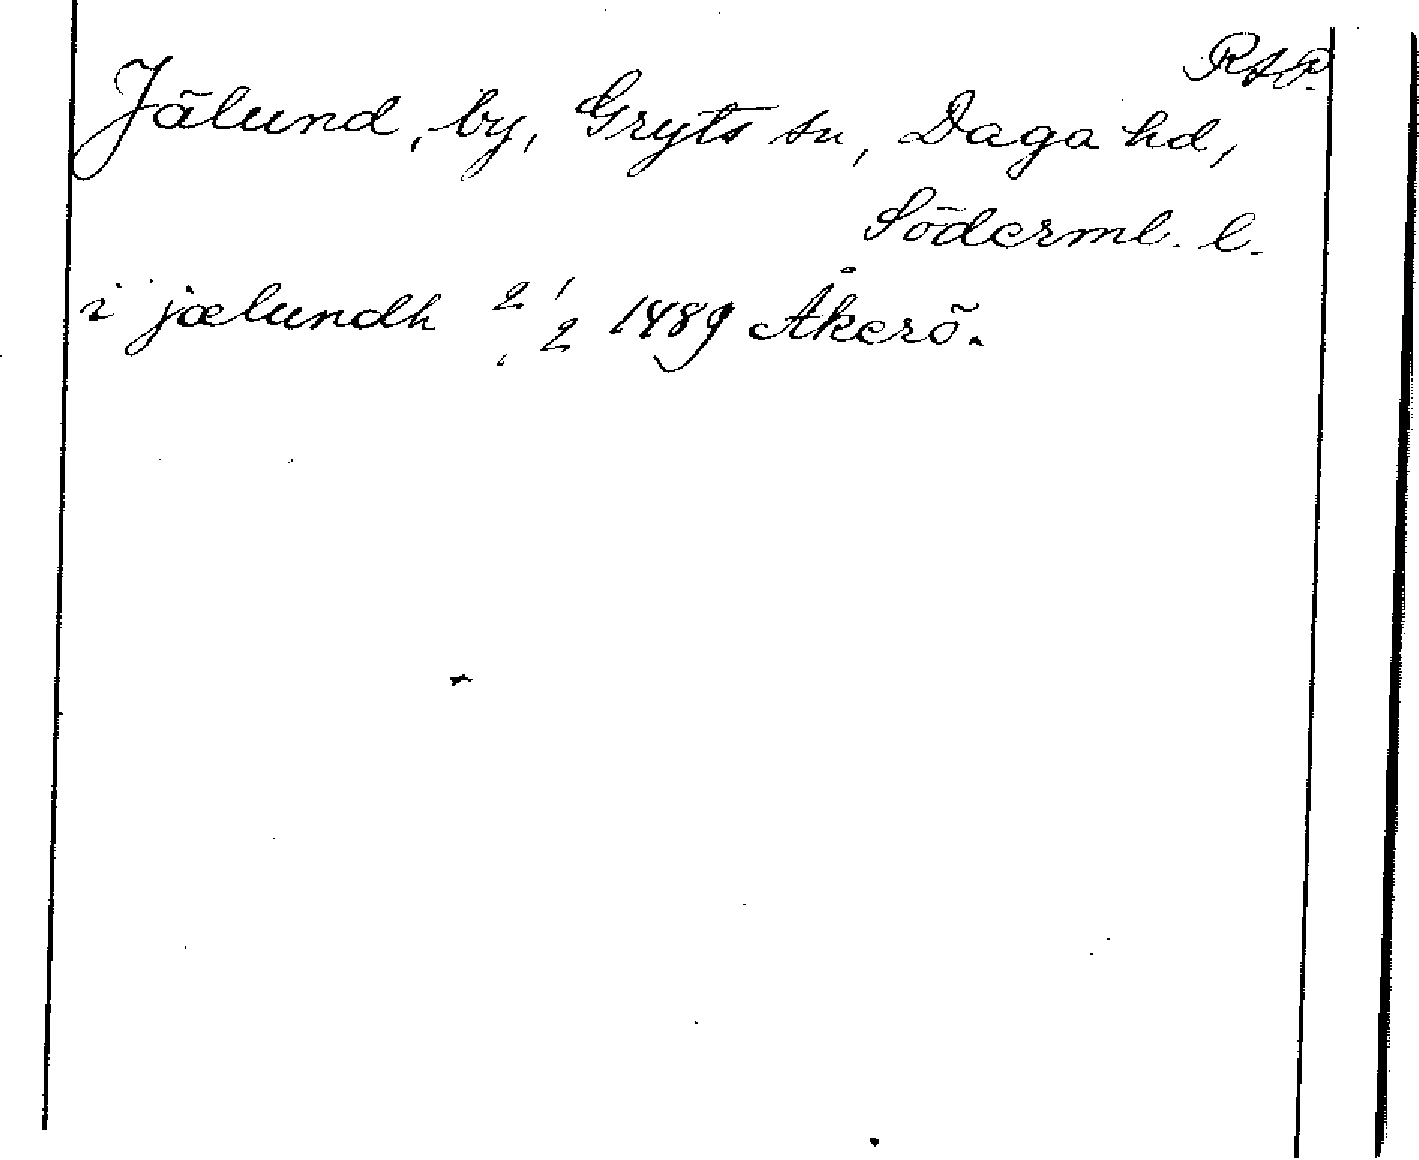 RAP.
Jälund, by, Gryts sn, Daga hd,
Söderml. l.
i jælundh 2/2 1489 Åkerö.